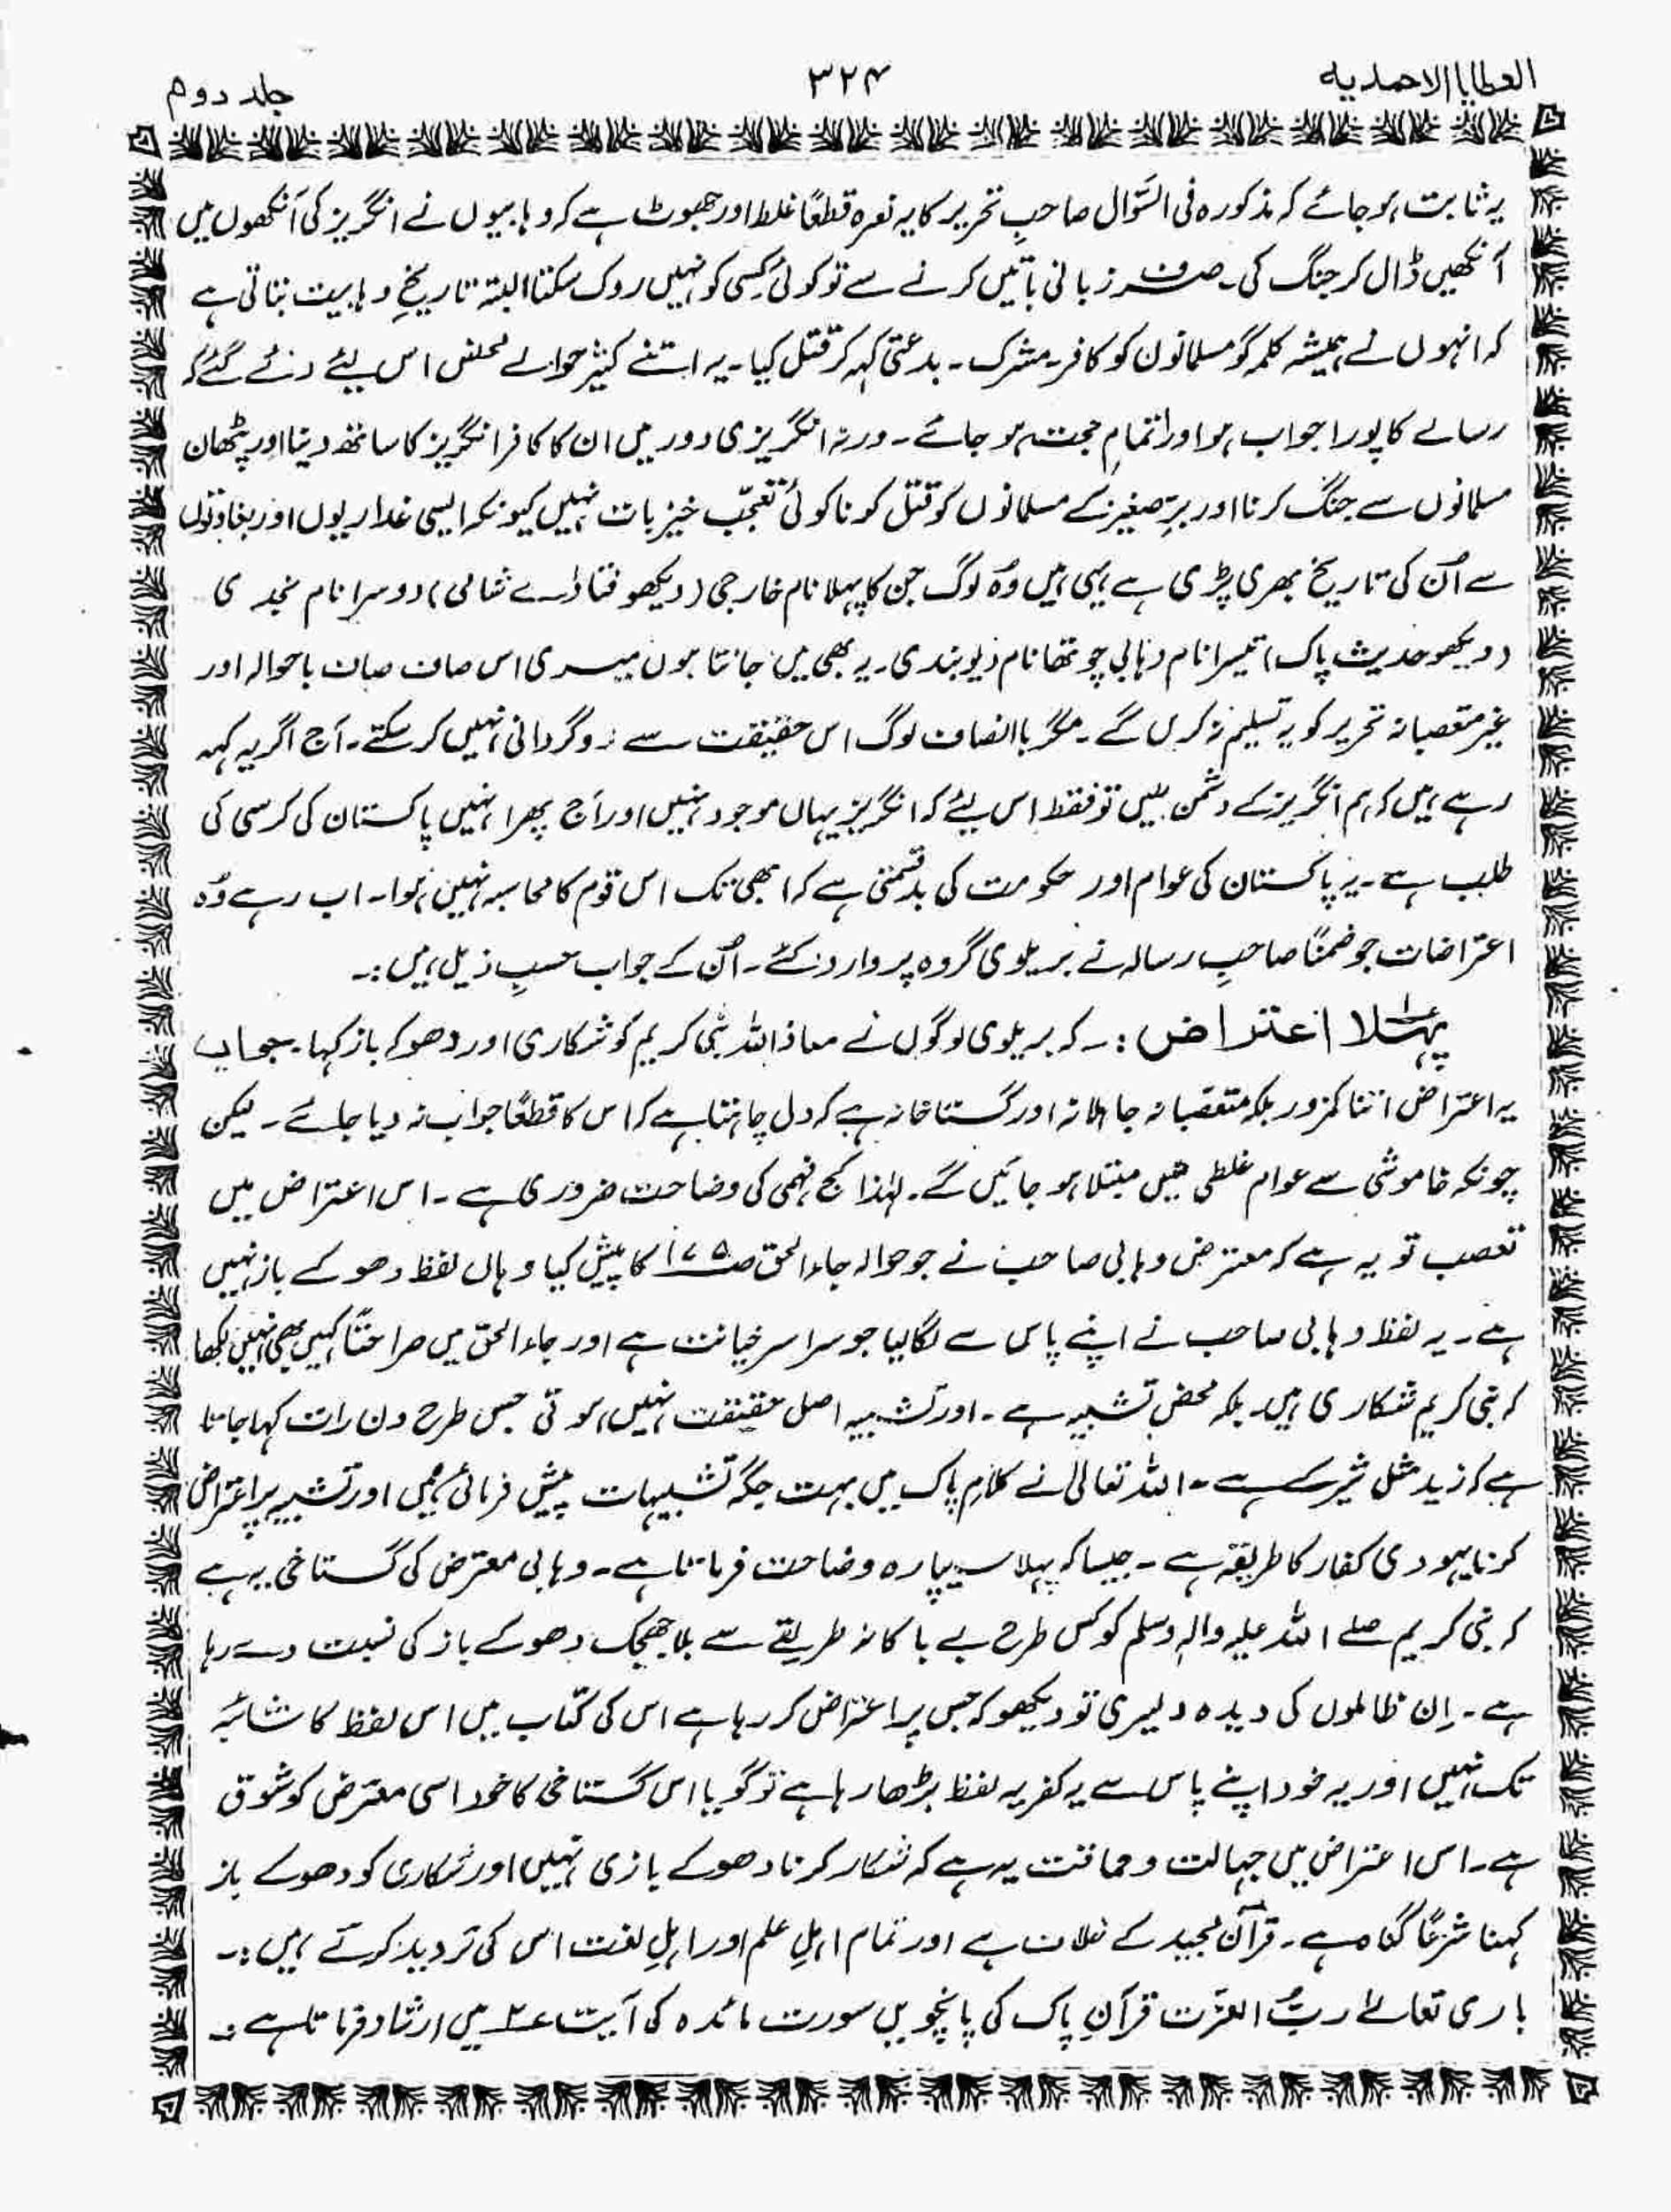 العطایا الاحمدیہ
۳۲۴
جلد دوم
یہ ثابت ہو جائے کہ مذکورہ فی السّوال صاحبِ تحریر کا یہ نعرہ قطعًا غلط اور جھوٹ ہے کہ وہابیوں نے انگریز کی آنکھوں میں
آنکھیں ڈال کر جنگ کی۔ صرف زبانی باتیں کرنے سے تو کوئی کِسی کو نہیں روک سکتا البتہ تاریخِ وہابیت بتاتی ہے
کہ انہوں نے ہمیشہ کلمہ گو مسلمانوں کو کافر۔ مشرک۔ بدعتی کہہ کر قتل کیا۔ یہ اتنے کثیر حوالے محض اس لیئے دئے گئے کہ
رسالے کا پورا جواب ہو اور اتمامِ حجت ہو جائے۔ ورنہ انگریزی دور میں ان کا کافر انگریز کا ساتھ دینا اور پٹھان
مسلمانوں سے جنگ کرنا اور برِّصغیر کے مسلمانوں کو قتل کرنا کوئی تعجّب خیز بات نہیں کیونکہ ایسی غداریوں اور بغاوتوں
سے اُن کی تاریخ بھری پڑی ہے یہی ہیں وُہ لوگ جن کا پہلا نام خارجی (دیکھو فتاوٰے شامی) دوسرا نام نجدی
(دیکھو حدیث پاک) تیسرا نام وہابی چوتھا نام دیوبندی۔ یہ بھی میں جانتا ہوں میری اس صاف صاف باحوالہ اور
غیر متعصبانہ تحریر کو یہ تسلیم نہ کریں گے۔ مگر باانصاف لوگ اس حقیقت سے روگردانی نہیں کر سکتے۔ آج اگر یہ کہہ
رہے ہیں کہ ہم انگریز کے دشمن ہیں تو فقط اِس لیئے کہ انگریز یہاں موجود نہیں اور آج پھر انہیں پاکستان کی کرسی کی
طلب ہے۔ یہ پاکستان کی عوام اور حکومت کی بدقسمتی ہے کہ ابھی تک اس قوم کا محاسبہ نہیں ہوا۔ اب رہے وُہ
اعتراضات جو ضمنًا صاحبِ رسالہ نے بریلوی گروہ پر وارد کئے۔ اُن کے جواب حسبِ ذیل ہیں:۔
پہلا اعتراض :۔ کہ بریلوی لوگوں نے معاذ اللہ نبی کریم کو شکاری اور دھوکہ باز کہا۔ جواب
یہ اعتراض اتنا کمزور بلکہ متعصّبانہ جاہلانہ اور گستاخانہ ہے کہ دل چاہتا ہے کہ اس کا قطعًا جواب نہ دیا جائے۔ لیکن
چونکہ خاموشی سے عوام غلطی میں مبتلا ہو جائیں گے۔ لہٰذا کج فہمی کی وضاحت ضروری ہے۔ اس اعتراض میں
تعصب تو یہ ہے کہ معترض وہابی صاحب نے جو حوالہ جاء الحق صـ ۱۷۵ کا پیش کیا وہاں لفظ دھوکے باز نہیں
ہے۔ یہ لفظ وہابی صاحب نے اپنے پاس سے لگا لیا جو سراسر خیانت ہے اور جاء الحق میں صراحتًا کہیں بھی نہیں لکھا
کہ نبی کریم شکاری ہیں۔ بلکہ محض تشبیہ ہے۔ اور تشبیہ اصل حقیقت نہیں ہوتی جس طرح دن رات کہا جاتا
ہے کہ زید مثل شیر کے ہے۔ اللہ تعالیٰ نے کلامِ پاک میں بہت جگہ تشبیہات پیش فرمائی ہیں اور تشبیہ پر اعتراض
کرنا یہودی کفار کا طریقہ ہے۔ جیسا کہ پہلا سیپارہ وضاحت فرماتا ہے۔ وہابی معترض کی گستاخی یہ ہے
کہ نبی کریم صلے اللہ علیہ والہٖ وسلم کو کس طرح بے باکانہ طریقے سے بلا جھجک دھوکے باز کی نسبت دے رہا
ہے۔ اِن ظالموں کی دیدہ دلیری تو دیکھو کہ جس پر اعتراض کر رہا ہے اس کی کتاب میں اس لفظ کا شائبہ
تک نہیں اور یہ خود اپنے پاس سے یہ کفریہ لفظ بڑھا رہا ہے تو گویا اس گستاخی کا خود اسی معترض کو شوق
ہے۔ اس اعتراض میں جہالت و حماقت یہ ہے کہ شکار کرنا دھوکے بازی نہیں اور شکاری کو دھوکے باز
کہنا شرعًا گناہ ہے۔ قرآن مجید کے خلاف ہے اور تمام اہلِ علم اور اہلِ لغت اس کی تردید کرتے ہیں:۔
باری تعالےٰ ربُّ العزّت قرآنِ پاک کی پانچویں سورت مائدہ کی آیت ۴ میں ارشاد فرماتا ہے :۔